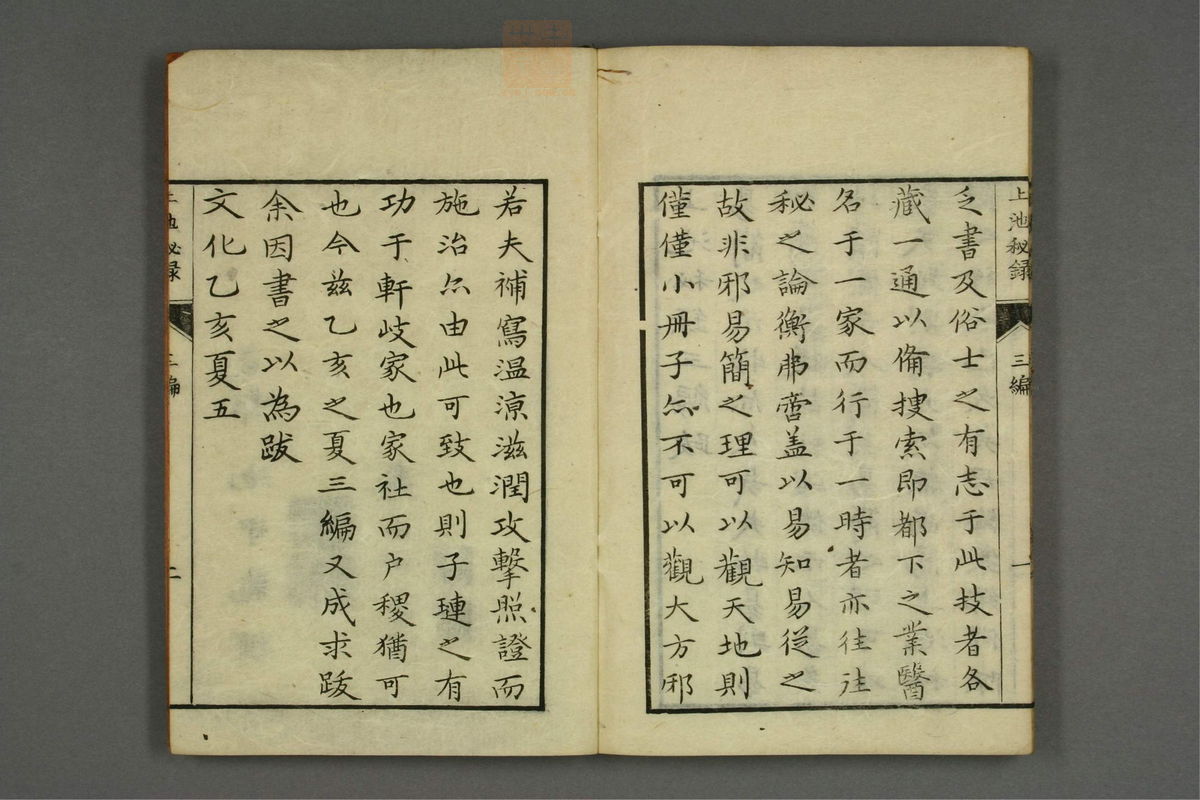 上池秘録 三編 一
乏書及俗士之有志于此技者各
藏一通以備捜索即都下之業醫
名于一家而行于一時者亦往往
秘之論衡弗啻盖以易知易從之
故非邪易簡之理可以觀天地則
僅僅小冊子亦不可以觀大方邪
若夫補寫温凉滋潤攻擊照證而
施治亦由此可致也則子璉之有
功于軒岐家也家社而户稷猶可
也今茲乙亥之夏三編又成求跋
余因書之以為跋
文化乙亥夏五
上池秘録 三編 二